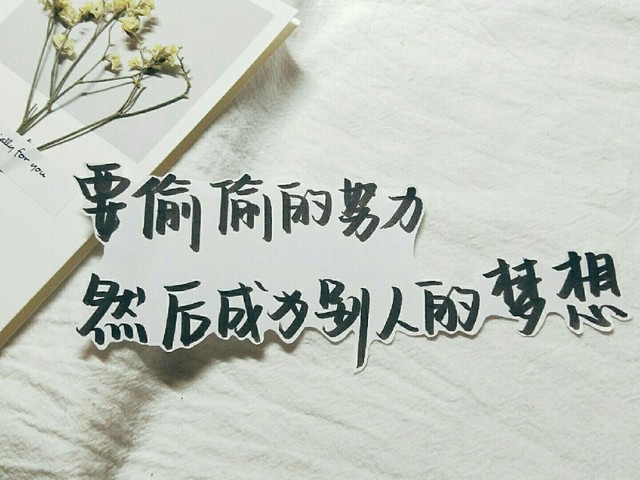 ally for you
要偷偷的努力
然后成为别人的梦想